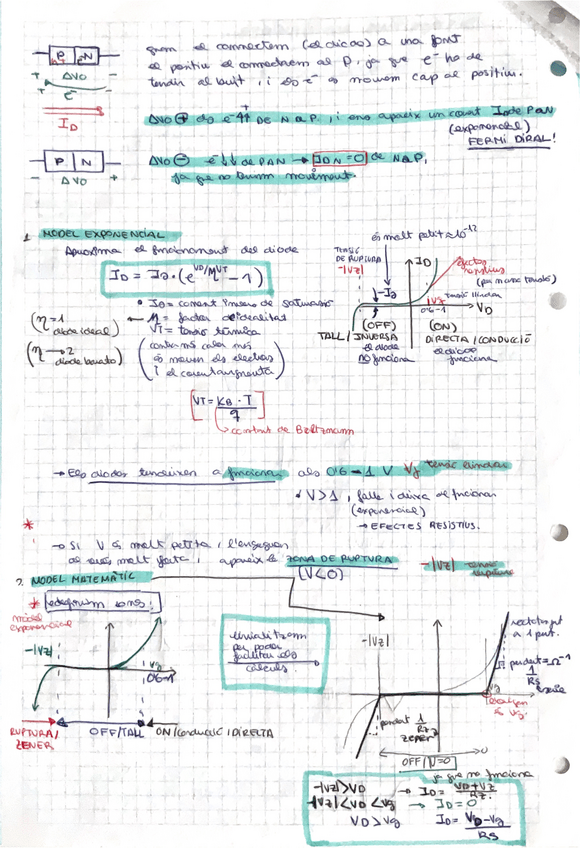 quan el connectem (el díode) a una font
el positiu el connectarem al P, ja que e⁻ ha de
tendir al buit, i els e⁻ es mouen cap al positiu.
P N
+ ΔVO -
e⁻
ID
ΔVO ⊕ els e⁻ ↑↑ DE N a P, i ens apareix un corrent ID de P a N
(exponencial)
FERMI DIRAL!
P N
- ΔVO +
ΔVO ⊖ e⁻ ↓↓ de P A N → IDN = 0 de N a P,
ja que no tenim moviment.
1. MODEL EXPONENCIAL
Aproxima el funcionament del díode
ID = Is·(e^VD/ηVT - 1)
• Is = corrent invers de saturació
(η = 1 díode ideal)
η = factor d'idealitat
(η → 2 díode barato)
VT = tensió tèrmica
(contra més calor més
es mouen els electrons
i el corrent augmenta)
VT = KB · T / q
→ constant de Boltzmann
és molt petit ≈ 10⁻¹²
TENSIÓ
DE RUPTURA
-|Vz|
ID
efectes
resistius
(per massa tensió)
-Is
Vγ
tensió llindar
0'6-1
VD
(OFF)
TALL / INVERSA
el díode
no funciona
(ON)
DIRECTA / CONDUCCIÓ
el díode
funciona
→ Els díodes tendeixen a funcionar als 0'6 - 1 V Vγ tensió llindar
V > 1, falla i deixa de funcionar
(exponencial)
→ EFECTES RESISTIUS.
*
→ Si V és molt petita, l'
de molt , apareix la ZONA DE RUPTURA
(V<0)
-|Vz| tensió
ruptura
2. MODEL MATEMÀTIC
* zones:
model
exponencial
-|Vz|
Vγ
0'6-1
RUPTURA/
ZENER
OFF/TALL
ON/CONDUCCIÓ/DIRECTA
linealitzem
per poder
facilitar els
càlculs
-|Vz|
a 1 punt.
pendent = Ω⁻¹
1/Rs
Vγ
pendent 1/Rz
zener
OFF/V=0
ja que no funciona
-|Vz| > VD → ID = VD + Vz / Rz
-|Vz| < VD < Vγ → ID = 0
VD > Vγ ID = VD - Vγ / Rs